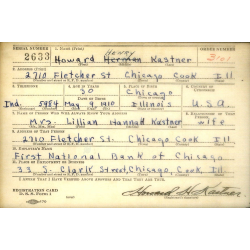 SERIAL NUMBER 1. NAME (Print) ORDER NUMBER
HENRY
2633 Howard Herman Kastner
2. ADDRESS (Print)
2710 Fletcher St. Chicago Cook Ill.
3. TELEPHONE 4. AGE IN YEARS 5. PLACE OF BIRTH 6. COUNTRY OF CITIZENSHIP
30 Chicago
Ind. 5984 May 9, 1910 Illinois U.S.A.
7. NAME OF PERSON WHO WILL ALWAYS KNOW YOUR ADDRESS
Mrs. Lillian Hannah Kastner wife
8. ADDRESS OF THAT PERSON
2710 Fletcher St. Chicago Cook Ill.
9. EMPLOYER'S NAME
First National Bank of Chicago
10. PLACE OF EMPLOYMENT OR BUSINESS
33 S. Clark Street, Chicago, Cook Ill.
I AFFIRM THAT I HAVE VERIFIED ABOVE ANSWERS AND THAT THEY ARE TRUE.
REGISTRATION CARD
D. S. S. Form 1
Howard H. Kastner